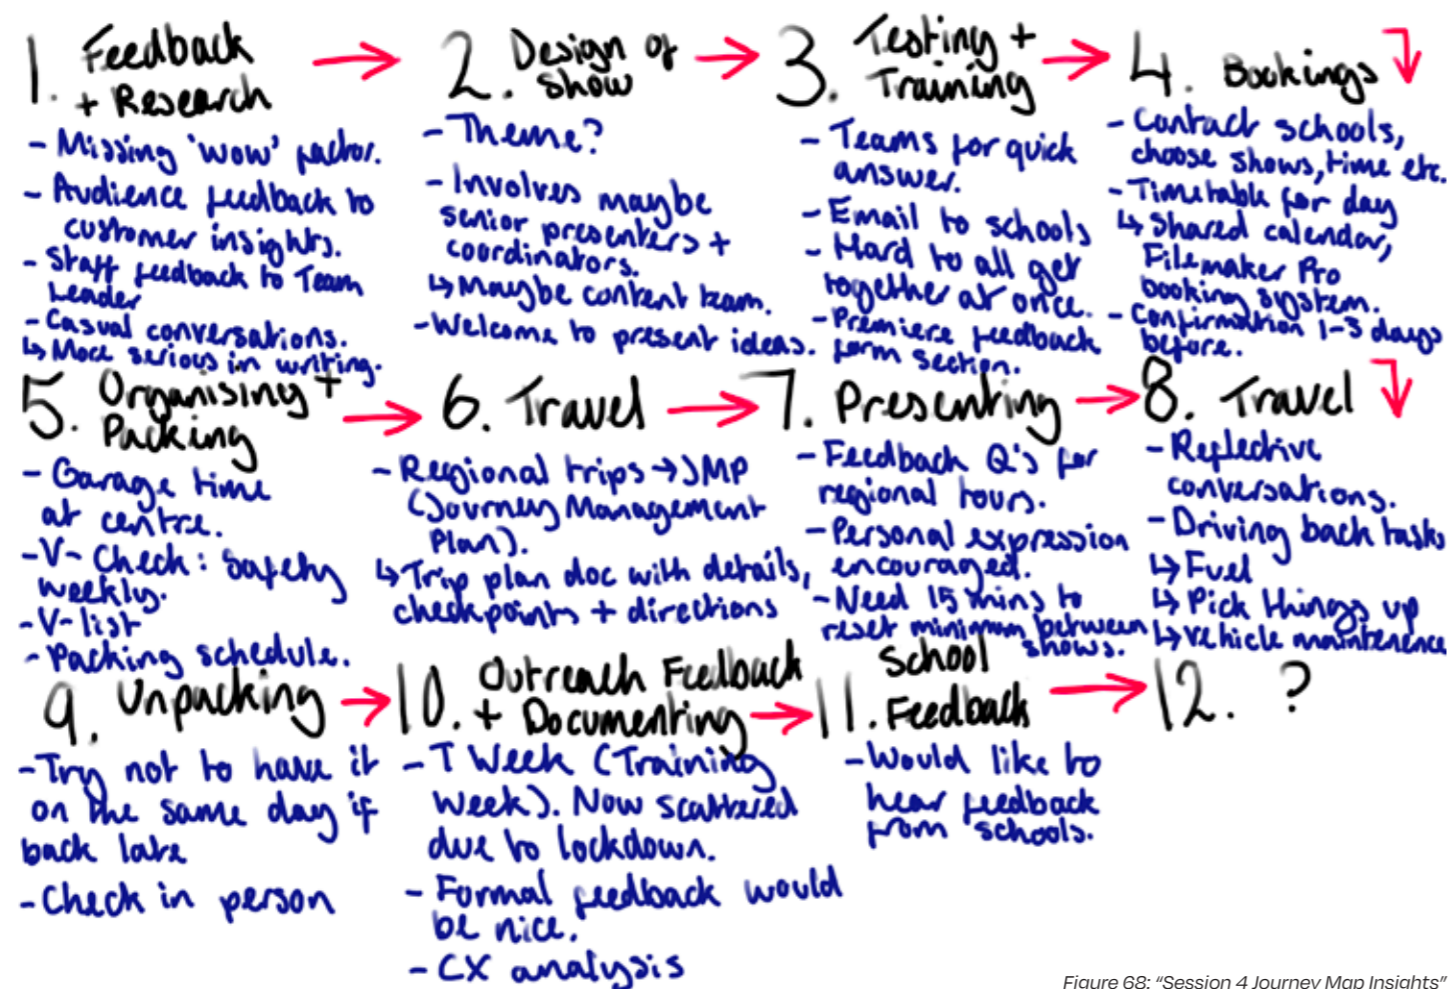 1. Feedback
+ Research
- Missing 'wow' factor.
- Audience feedback to
customer insights.
- Staff feedback to Team
Leader
- Casual conversations.
↳ More serious in writing.
2. Design of
Show
- Theme?
- Involves maybe
senior presenters +
coordinators.
↳ Maybe content team.
- Welcome to present ideas.
3. Testing +
Training
- Teams for quick
answer.
- Email to schools
- Hard to all get
together at once.
- Premiere feedback
form section.
4. Bookings
- Contact schools,
choose shows, time etc.
- Timetable for day
↳ Shared calendar,
Filemaker Pro
booking system.
- Confirmation 1-3 days
before.
5. Organising +
Packing
- Garage time
at centre.
- V-Check: Safety
weekly.
- V-list
- Packing schedule.
6. Travel
- Regional trips → JMP
(Journey Management
Plan).
↳ Trip plan doc with details,
checkpoints + directions
7. Presenting
- Feedback Q's for
regional tours.
- Personal expression
encouraged.
- Need 15 mins to
reset minimum between
shows.
8. Travel
- Reflective
conversations.
- Driving back tasks
↳ Fuel
↳ Pick things up
↳ Vehicle maintenence
9. Unpacking
- Try not to have it
on the same day if
back late
- Check in person
10. Outreach Feedback
+ Documenting
- T Week (Training
Week). Now scattered
due to lockdown.
- Formal feedback would
be nice.
- CX analysis
11. School
Feedback
- Would like to
hear feedback
from schools.
12. ?
Figure 68: "Session 4 Journey Map Insights"